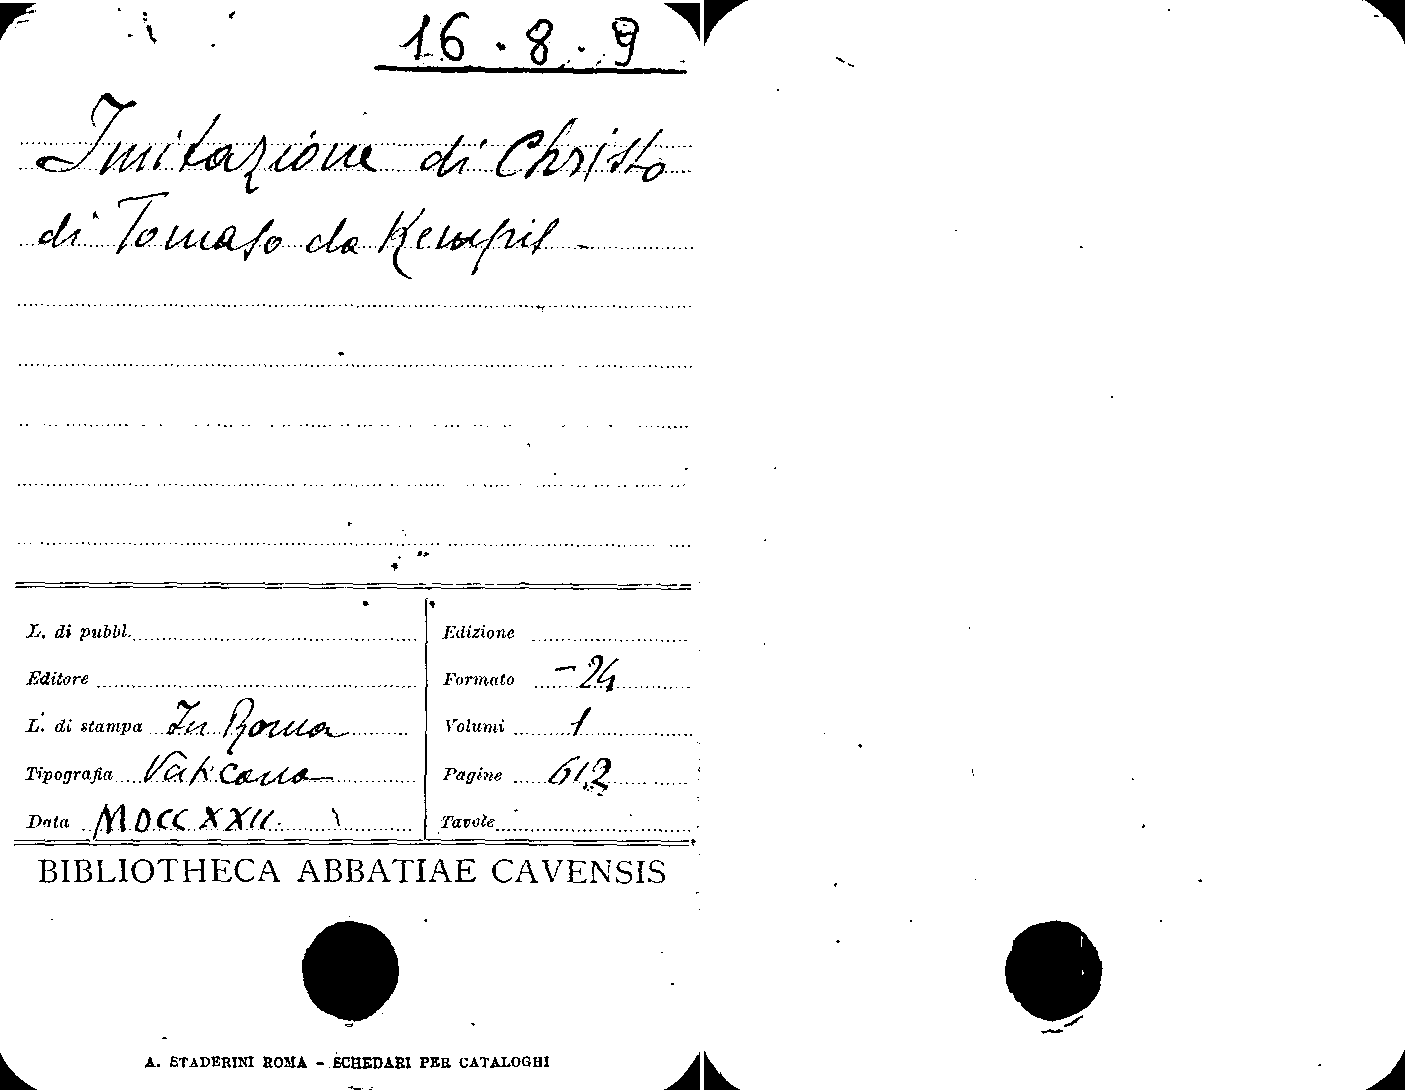 16 . 8 . 9
Imitazione di Christo
di Tomaso da Kempis -
L. di pubbl.
Editore
L. di stampa In Roma
Tipografia Vaticana
Data MDCCXXII.
Edizione
Formato -24
Volumi 1
Pagine 612
Tavole
BIBLIOTHECA ABBATIAE CAVENSIS
A. STADERINI ROMA - SCHEDARI PER CATALOGHI